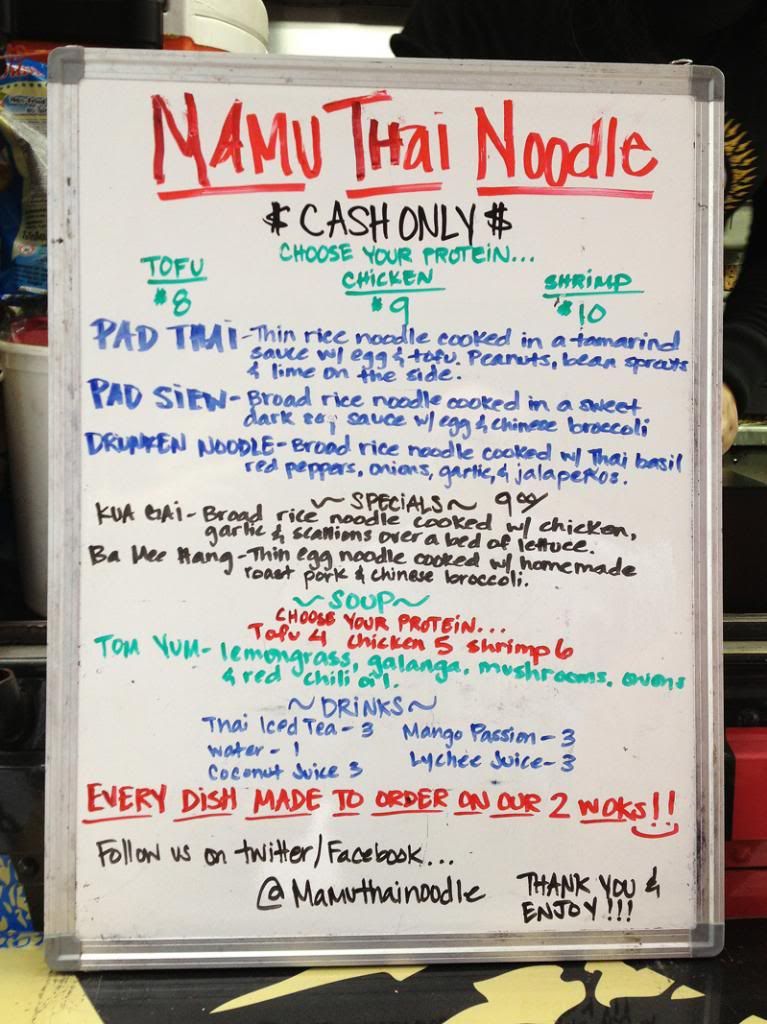 MAMU THai Noodle
$ CASH ONLY $
CHOOSE YOUR PROTEIN...
TOFU CHICKEN SHRIMP
$8 $9 $10
PAD THAI - Thin rice noodle cooked in a tamarind
sauce w/ egg & tofu. Peanuts, bean sprouts
& lime on the side.
PAD SIEW - Broad rice noodle cooked in a sweet
dark soy sauce w/ egg & chinese broccoli
DRUNKEN NOODLE - Broad rice noodle cooked w/ Thai basil
red peppers, onions, garlic, & jalapeños.
~ SPECIALS ~ 9
KUA GAI - Broad rice noodle cooked w/ chicken,
garlic & scallions over a bed of lettuce.
Ba Mee Hang - Thin egg noodle cooked w/ homemade
roast pork & chinese broccoli.
~ SOUP ~
CHOOSE YOUR PROTEIN...
Tofu 4 chicken 5 shrimp 6
TOM YUM - lemongrass, galanga, mushrooms, onions
& red chili oil.
~ DRINKS ~
Thai Iced Tea - 3 Mango Passion - 3
water - 1 Lychee Juice - 3
Coconut Juice 3
EVERY DISH MADE TO ORDER ON OUR 2 WOKS!!
Follow us on twitter/Facebook...
@Mamuthainoodle
THANK YOU &
ENJOY!!!